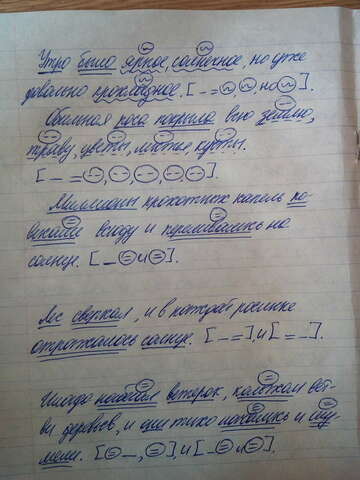 Утро было яркое, солнечное, но уже
довольно прохладное. [ – = , но ].
Обильная роса покрыла всю землю,
траву, цветы, листья, кусты.
[ – = , , , , ].
Миллионы крохотных капель по-
висли всюду и переливались на
солнце. [ – и ].
Лес сверкал, и в каждой росинке
отражалось солнце. [ – = ] и [ = – ].
Иногда набегал ветерок, колыхал вет-
ви деревьев, и они тихо и шу
мели. [ = – , = ] и [ – = и = ].